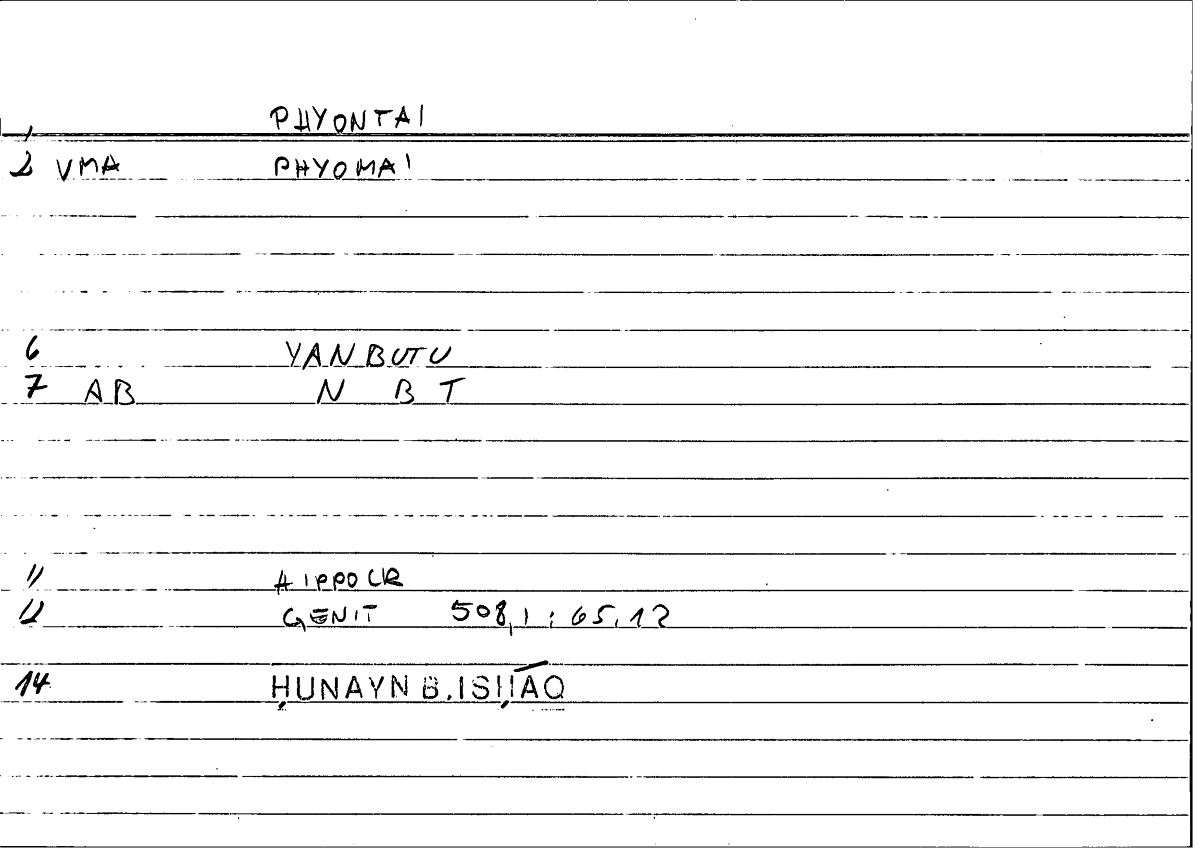 1 PHYONTAI
2 VMA PHYOMAI
6 YANBUTU
7 AB N B T
11 HIPPOCR
12 GENIT 508,1 : 65.12
14 ḤUNAYN B.ISḤĀQ